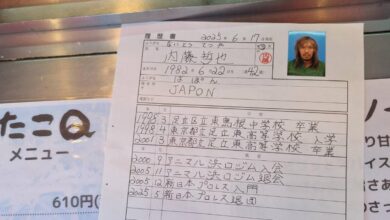 履歴書
2025年6月17日現在
ないとう てつや
内藤哲也
1982年6月22日
42
じゃぽん
JAPON
1995.3 足立区立東島根中学校 卒業
1998.4 東京都立足立東高等学校 入学
2001.3 東京都立足立東高等学校 卒業
2000.9 アニマル浜口ジム入会
2005.11 アニマル浜口ジム退会
2005.12 新日本プロレス入門
2025.5 新日本プロレス退団
たこQ
メニュー
610円
り甘
イス
さお